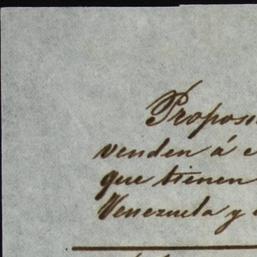 Proposi
venden á e
que tienen
Venezuela y